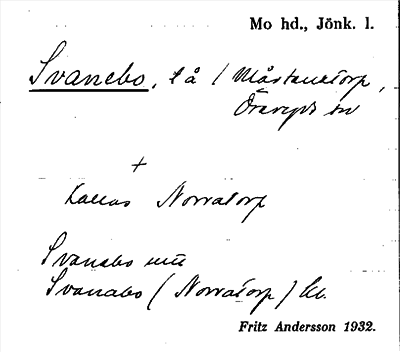 Mo hd., Jönk. l.
Svanebo, lå / Mårtenstorp,
Öreryds sn
+
kallas Norratorp
Svanebo
Svanabo (Norratorp)
Fritz Andersson 1932.